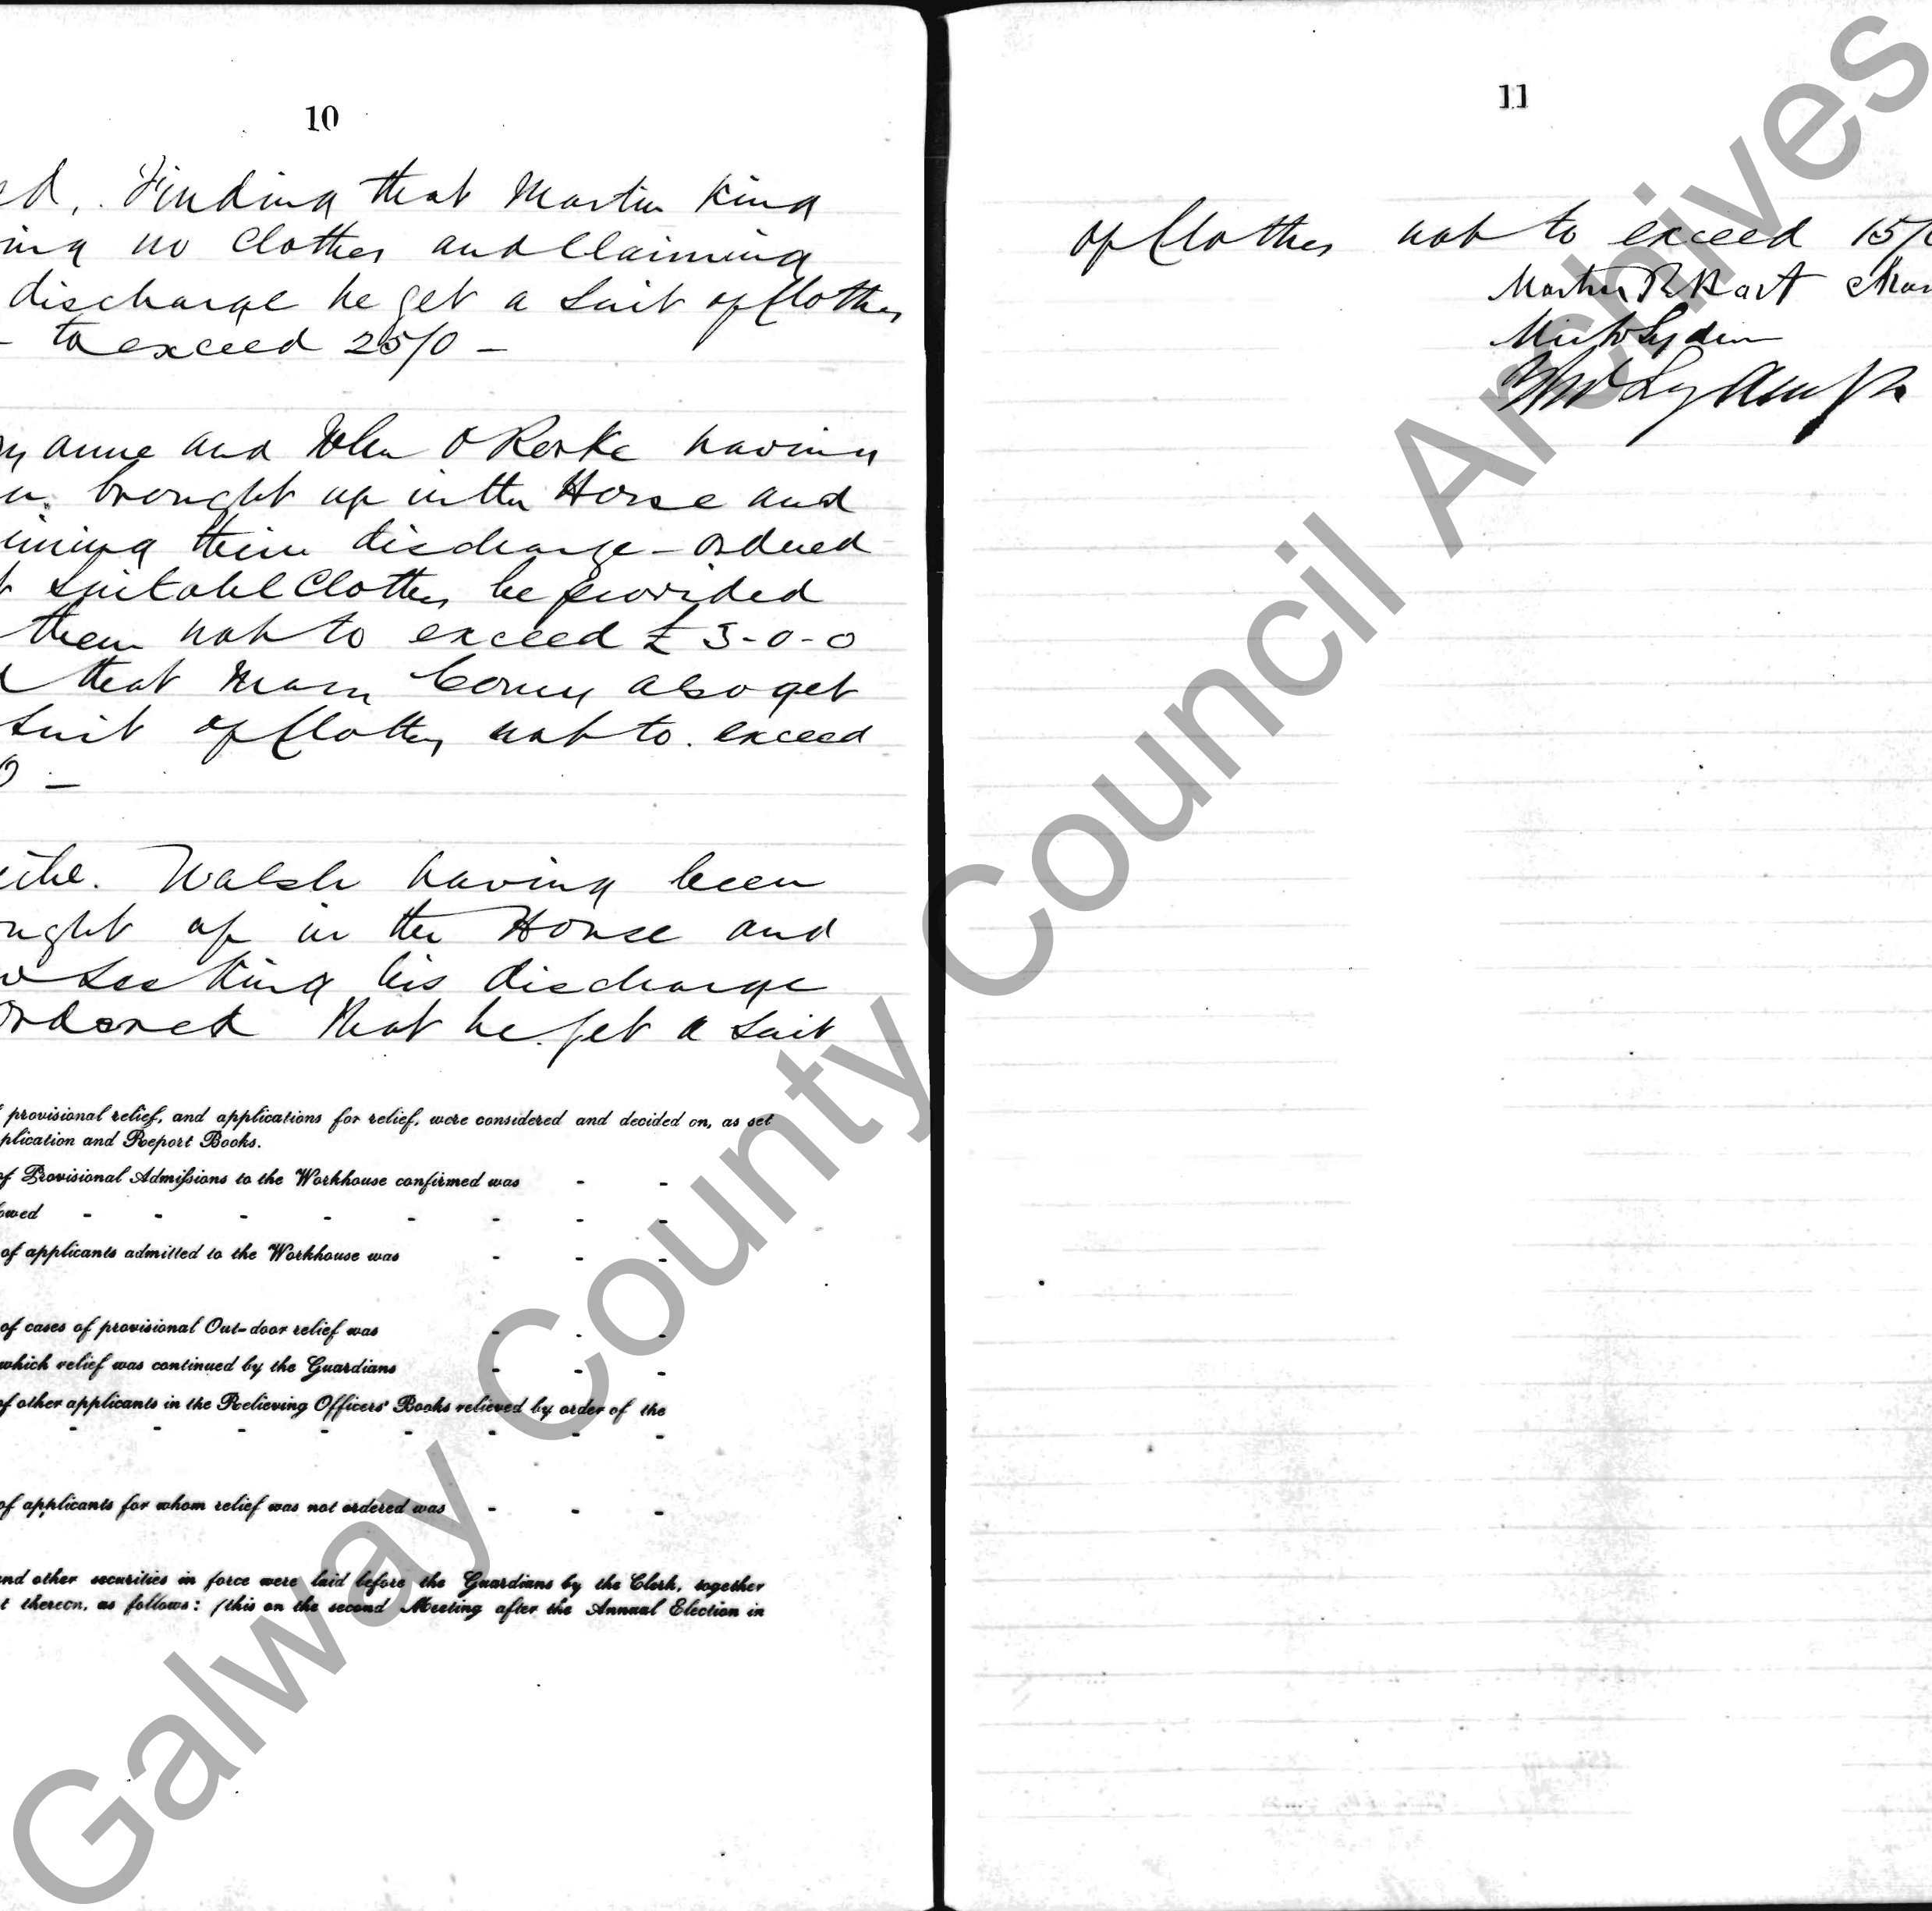 10
ed, . Finding that Martin King
ing no clothes and claiming
discharge he get a suit of clothes
- to exceed 25/0 -
y anne and John O Rorke having
n. brought up in the House and
iming their discharge - ordered
t suitable clothes be provided
them not to exceed £ 3-0-0
d that Mary also get
suit of clothes not to. exceed
0 -
Walsh having been
ught up in the House and
w seeking his discharge
ordered that he. get a suit
f provisional relief, and applications for relief, were considered and decided on, as set
plication and Report Books.
of Provisional Admissions to the Workhouse confirmed was - -
owed - - - - - - - -
of applicants admitted to the Workhouse was - - -
of cases of provisional Out-door relief was - - -
which relief was continued by the Guardians - - -
of other applicants in the Relieving Officers' Books relieved by order of the
- - - - - - - -
of applicants for whom relief was not ordered was - - -
and other securities in force were laid before the Guardians by the Clerk, together
t thereon, as follows: (this on the second Meeting after the Annual Election in
11
of clothes not to exceed 15/
Martin
Lyden
Galway County Council Archives